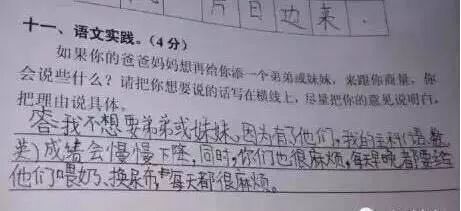 片日边来.
十一、语文实践。(4分)
如果你的爸爸妈妈想再给你添一个弟弟或妹妹，来跟你商量，你
会说些什么？请把你想要说的话写在横线上，尽量把你的意见说明白，
把理由说具体。
答我不想要弟弟或妹妹,因为有了他们,我的主科(语数
英)成绩会慢慢下降,同时,你们也很麻烦,每天早晚都要给
他们喂奶、换尿布,每天都很麻烦。